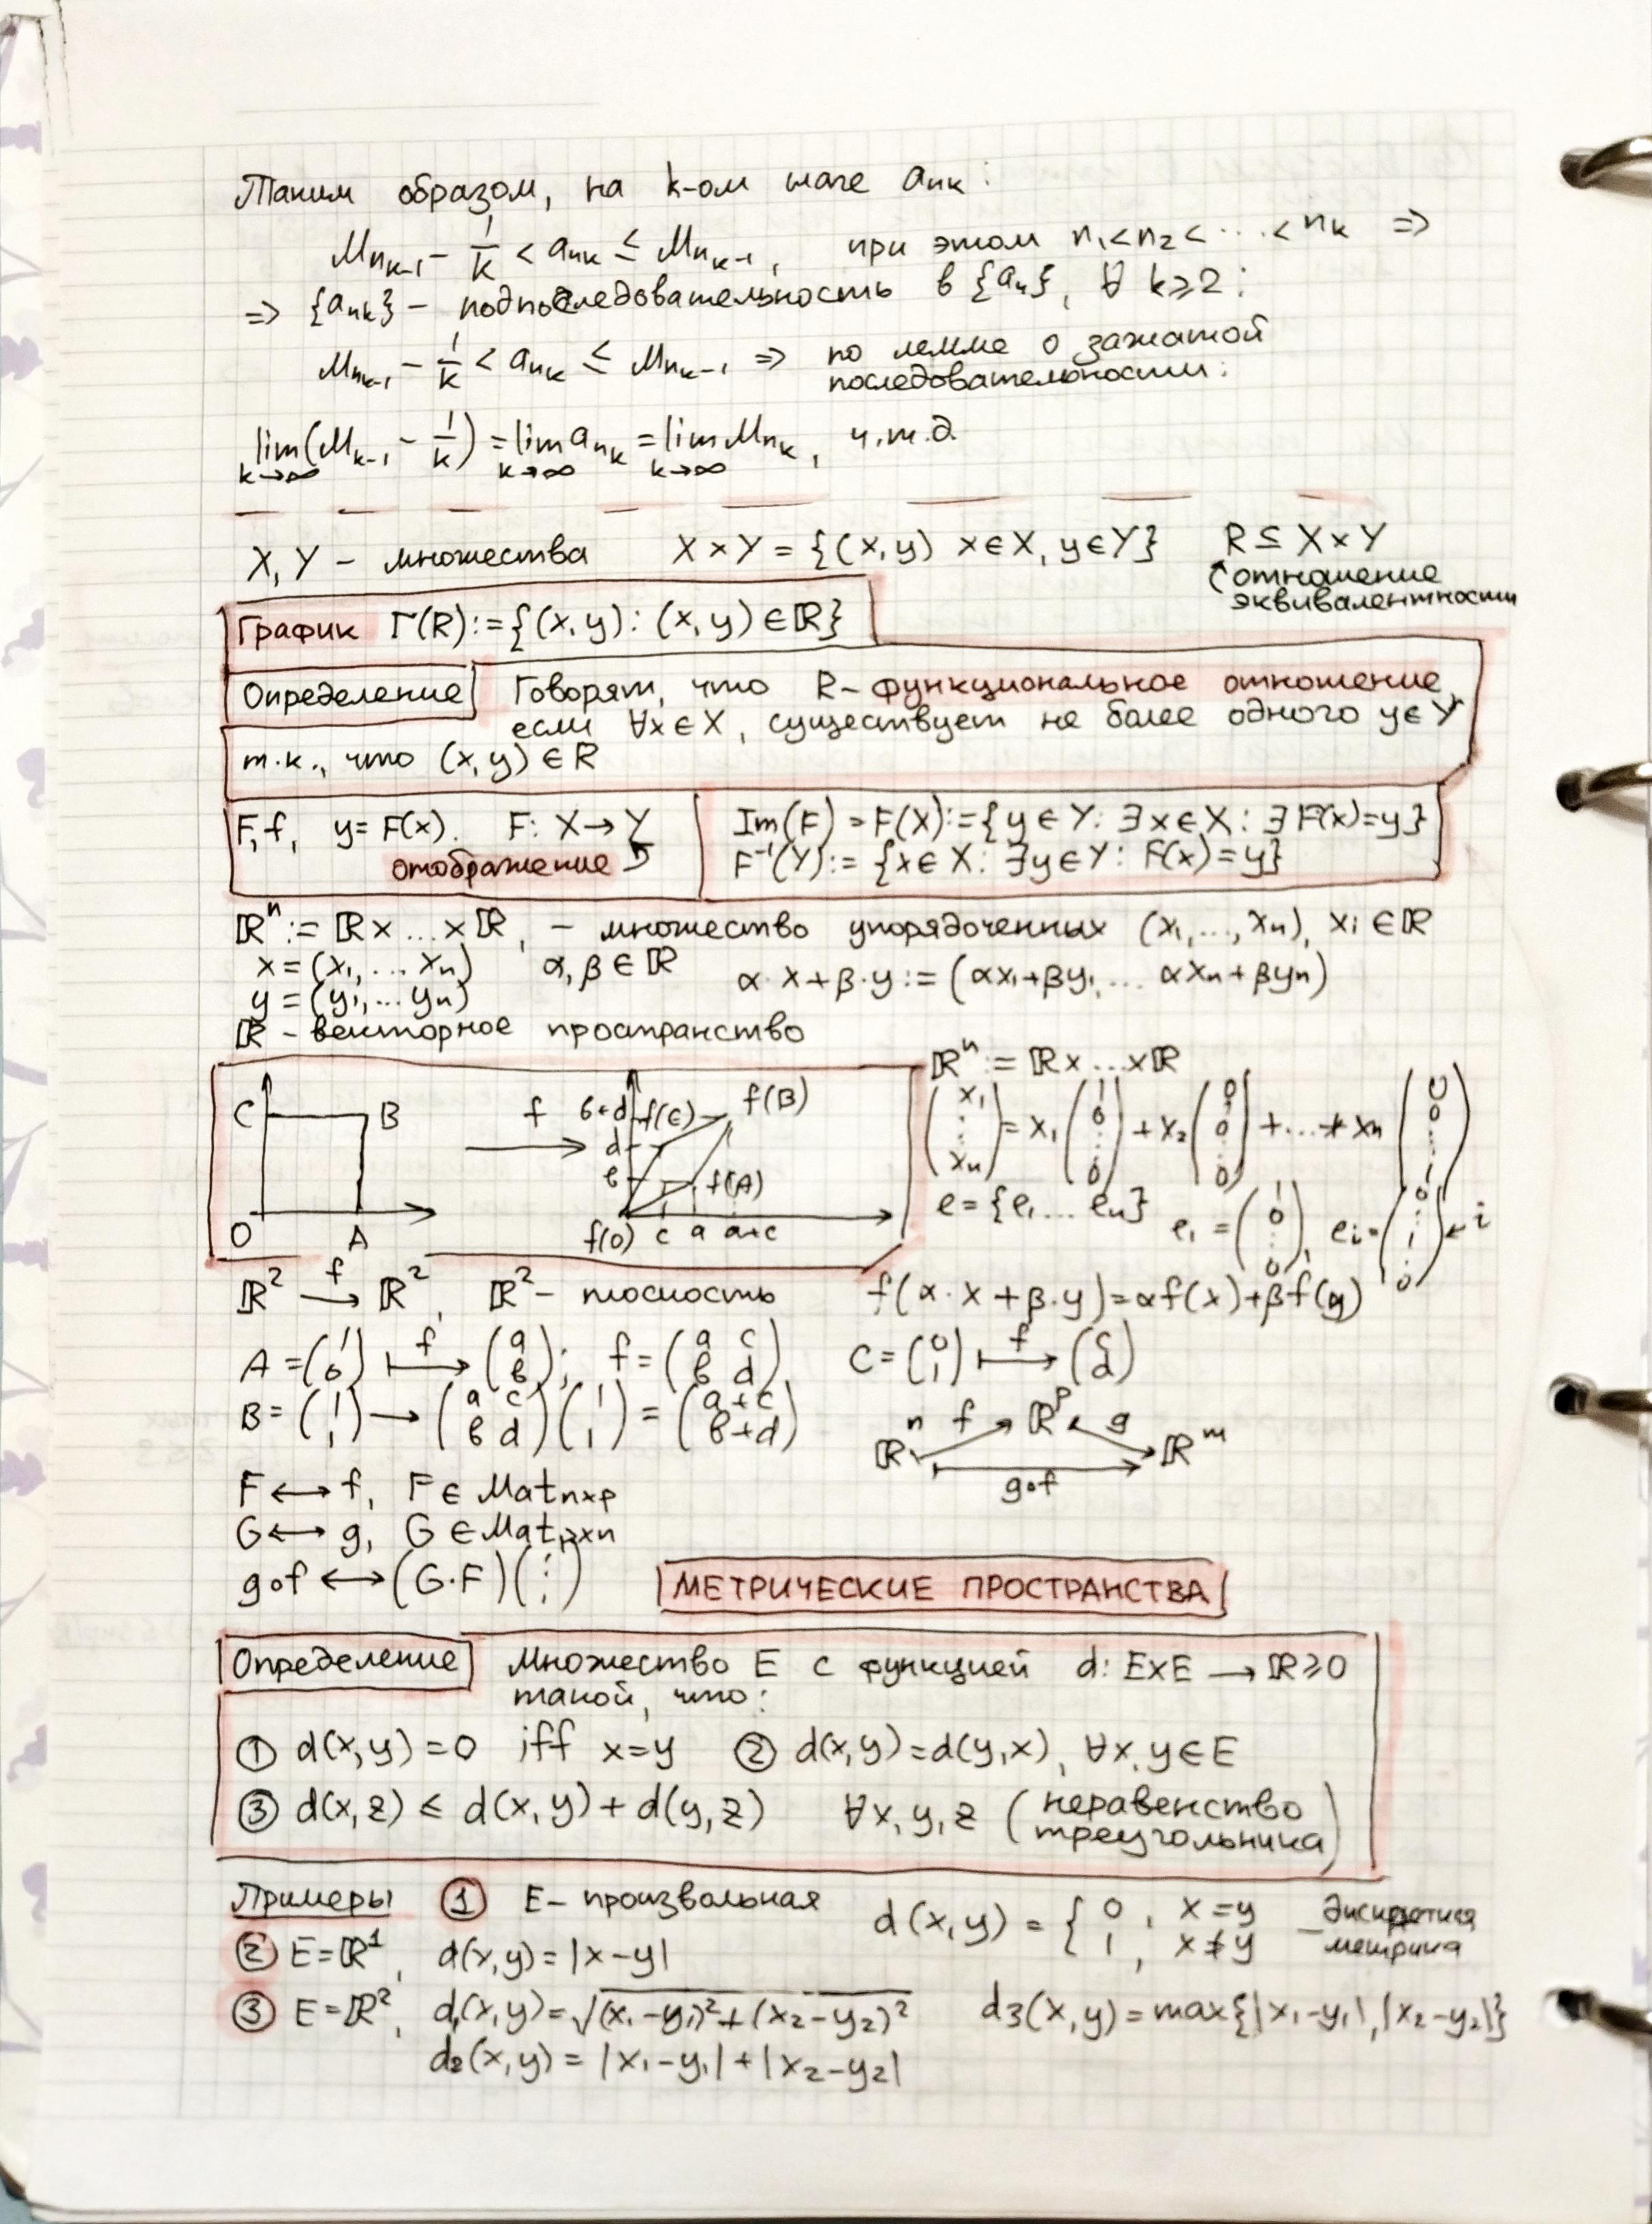 Таким образом, на k-ом шаге aₙₖ:
Mₙₖ₋₁ - 1/k < aₙₖ ≤ Mₙₖ₋₁, при этом n₁<n₂<...<nₖ =>
=> {aₙₖ} - подпоследовательность в {aₙ}, ∀ k⩾2:
Mₙₖ₋₁ - 1/k < aₙₖ ≤ Mₙₖ₋₁ => по лемме о зажатой
последовательности:
lim(Mₖ₋₁ - 1/k) = lim aₙₖ = lim Mₙₖ, ч.т.д.
k→∞ k→∞ k→∞
X, Y - множества X×Y = {(x,y) x∈X, y∈Y} R ⊆ X×Y
отношение
эквивалентности
График Γ(R):={(x,y): (x,y)∈ℝ}
Определение Говорят, что R-функциональное отношение,
если ∀x∈X, существует не более одного y∈Y
т.к., что (x,y)∈R
F,f, y=F(x). F: X→Y
отображение
Im(F) = F(X):={y∈Y: ∃x∈X: ∃F(x)=y}
F⁻¹(Y):= {x∈X: ∃y∈Y: F(x)=y}
ℝⁿ:= ℝ×...×ℝ, - множество упорядоченных (x₁,...,xₙ), xᵢ∈ℝ
x=(x₁,...xₙ) α,β∈ℝ α·x+β·y:=(αx₁+βy₁,...αxₙ+βyₙ)
y=(y₁,...yₙ)
ℝ - векторное пространство
C B O A
f
в+d f(C) f(B)
d
в f(A)
f(0) c a a+c
ℝⁿ:= ℝ×...×ℝ
(x₁ ⋮ xₙ) = x₁(1 0 ⋮ 0) + x₂(0 0 ⋮ 0) +...+ xₙ(0 0 ⋮ 1)
e={e₁...eₙ} e₁=(1 0 ⋮ 0), eᵢ=(0 ⋮ 1 ⋮ 0) ← i
ℝ² →f ℝ², ℝ² - плоскость f(α·x+β·y)=αf(x)+βf(y)
A=(1 0) ↦f (a в); f=(a c в d), C=(0 1) ↦f (c d)
B=(1 1) → (a c в d)(1 1) = (a+c в+d)
ℝⁿ f ℝᵖ g ℝᵐ
g∘f
F↔f, F∈Matₙₓₚ
G↔g, G∈Matₚₓₙ
g∘f↔(G·F)(⋮)
МЕТРИЧЕСКИЕ ПРОСТРАНСТВА
Определение Множество E с функцией d: E×E → ℝ⩾0
такой, что:
① d(x,y)=0 iff x=y ② d(x,y)=d(y,x), ∀x,y∈E
③ d(x,z) ⩽ d(x,y)+d(y,z) ∀x,y,z (неравенство
треугольника)
Примеры ① E- произвольная d(x,y) = { 0, x=y
1, x≠y - дискретная
метрика
② E=ℝ¹, d(x,y)=|x-y|
③ E=ℝ², d₁(x,y)=√(x₁-y₁)²+(x₂-y₂)² d₃(x,y)=max{|x₁-y₁|,|x₂-y₂|}
d₂(x,y) = |x₁-y₁|+|x₂-y₂|